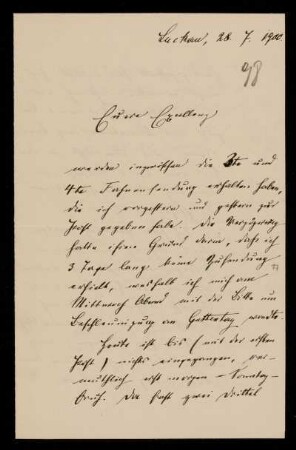 Luckau, 28. 7. 1900.
98
Euere Exzellenz
werden inzwischen die 3te und
4te Fahnensendung erhalten haben,
die ich vorgestern und gestern zur
Post gegeben habe. Die Verzögerung
hatte ihren Grund darin, daß ich
3 Tage lang keine Zusendung
erhielt, weshalb ich mich am
Mittwoch Abend mit der Bitte um
Beschleunigung an wandte.
Heute ist bis (mit der ersten
Post) nichts eingegangen, ver-
muthlich erst morgen – Sonntag –
früh. Da fast zwei Drittel